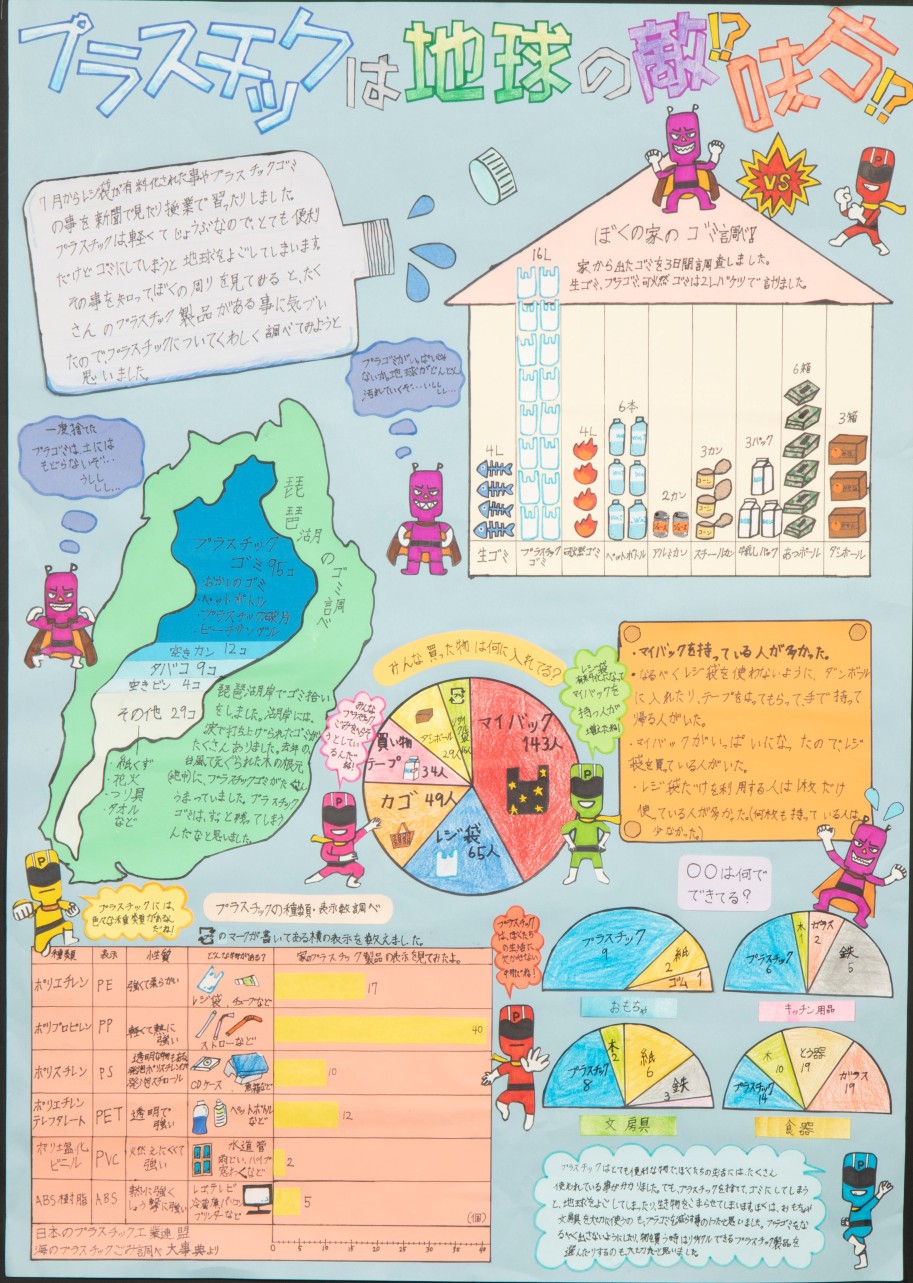 プラスチックは地球の敵!?味方!?
7月からレジ袋が有料化された事やプラスチックゴミ
の事を新聞で見たり授業で習ったりしました
プラスチックは軽くてじょうぶなので、とても便利
だけどゴミにしてしまうと地球をよごしてしまいます。
その事を知って、ぼくの周りを見てみると、たく
さんのプラスチック製品がある事に気づい
たのでプラスチックについてくわしく調べてみようと
思いました。
VS
ぼくの家のゴミ調べ!!
家から出たゴミを3日間調査しました。
生ゴミ、プラゴミ、可燃ゴミは2Lバケツで計りました。
4L
16L
4L
6本
2カン
3カン
3パック
6箱
3箱
生ゴミ
プラスチックゴミ
可燃ゴミ
ペットボトル
アルミカン
スチールカン
牛乳パック
あつボール
ダンボール
プラゴミがいっぱいじゃ
ないか。地球がどんどん
汚れていくぞ…いしし
しし…
一度捨てた
プラゴミは、土には
もどらないぞ…
うししし…
琵琶湖のゴミ調べ
プラスチック
ゴミ 95コ
おかしのゴミ
・ペットボトル
・プラスチック破片
・ビーチサンダル
空きカン 12コ
タバコ 9コ
空きビン 4コ
その他 29コ
・紙くず
・花火
・つり具
・タオル
など
琵琶湖岸でゴミ拾い
をしました。湖岸には、
波で打ち上げられたゴミが
たくさんありました。去年の
台風でえぐられた木の根元
に、プラスチックゴミがたくさん
うまっていました。プラスチック
ゴミは、ずっと残ってしまう
んだなと思いました。
みんな買った物は何に入れてる?
マイバック
143人
レジ袋
65人
カゴ 49人
買い物
テープ
34人
ダンボール
29人
みんな
プラゴミを
へらそう
としている
んだね!
レジ袋
有料化になって
マイバックを
持つ人が
増えたね!
・マイバックを持っている人が多かった。
・なるべくレジ袋を使わないように、ダンボール
に入れたり、テープをはってもらって手で持って
帰る人がいた。
・マイバックがいっぱいになったのでレジ
袋を買っている人がいた。
・レジ袋だけを利用する人は1枚だけ
使っている人が多かった。(何枚も持っている人は
少なかった。)
プラスチックには、
色々な種類があるん
だね!
プラスチックの種類・表示数調べ
プラ のマークが書いてある横の表示を数えました。
種類
表示
性質
どんな物がある?
家のプラスチック製品の表示を見てみたよ。
ポリエチレン
PE
強くて柔らかい
レジ袋、チューブなど
17
ポリプロピレン
PP
軽くて熱に
強い
ストローなど
40
ポリスチレン
PS
CDケース
魚箱など
10
ポリエチレン
テレフタレート
PET
透明で
強い
ペットボトル
など
12
ポリ塩化
ビニル
PVC
燃えにくくて
強い
水道管
窓わくなど
2
ABS樹脂
ABS
熱に強く
しょうげきに強い
テレビ
冷蔵庫、パソコン
プリンターなど
5
(個)
0 5 10 15 20 25 30 35 40
日本のプラスチック工業連盟
海のプラスチックごみ調べ大事典より
プラスチック
は、ぼくたち
の生活に
欠かせない
物だね!
○○は何で
できてる?
プラスチック
9
紙
2
ゴム 1
おもちゃ
プラスチック
6
木
1
ガラス
2
鉄
5
キッチン用品
プラスチック
8
木
2
紙
6
鉄
3
文房具
プラスチック
14
木
10
とう器
19
ガラス
19
食器
プラスチックはとても便利な物で、ぼくたちの生活には、たくさん
使われている事が分かりました。でも、プラスチックを捨てて、ゴミにしてしまう
と、地球をよごしてしまったり、生き物をこまらせてしまいます。ぼくは、おもちゃや
文房具を大切に使うのも、プラゴミを減らす事の1つだと思いました。プラゴミをな
るべく出さないようにしたり、物を買う時はリサイクルできるプラスチック製品を
選んだりするのも大切だと思いました